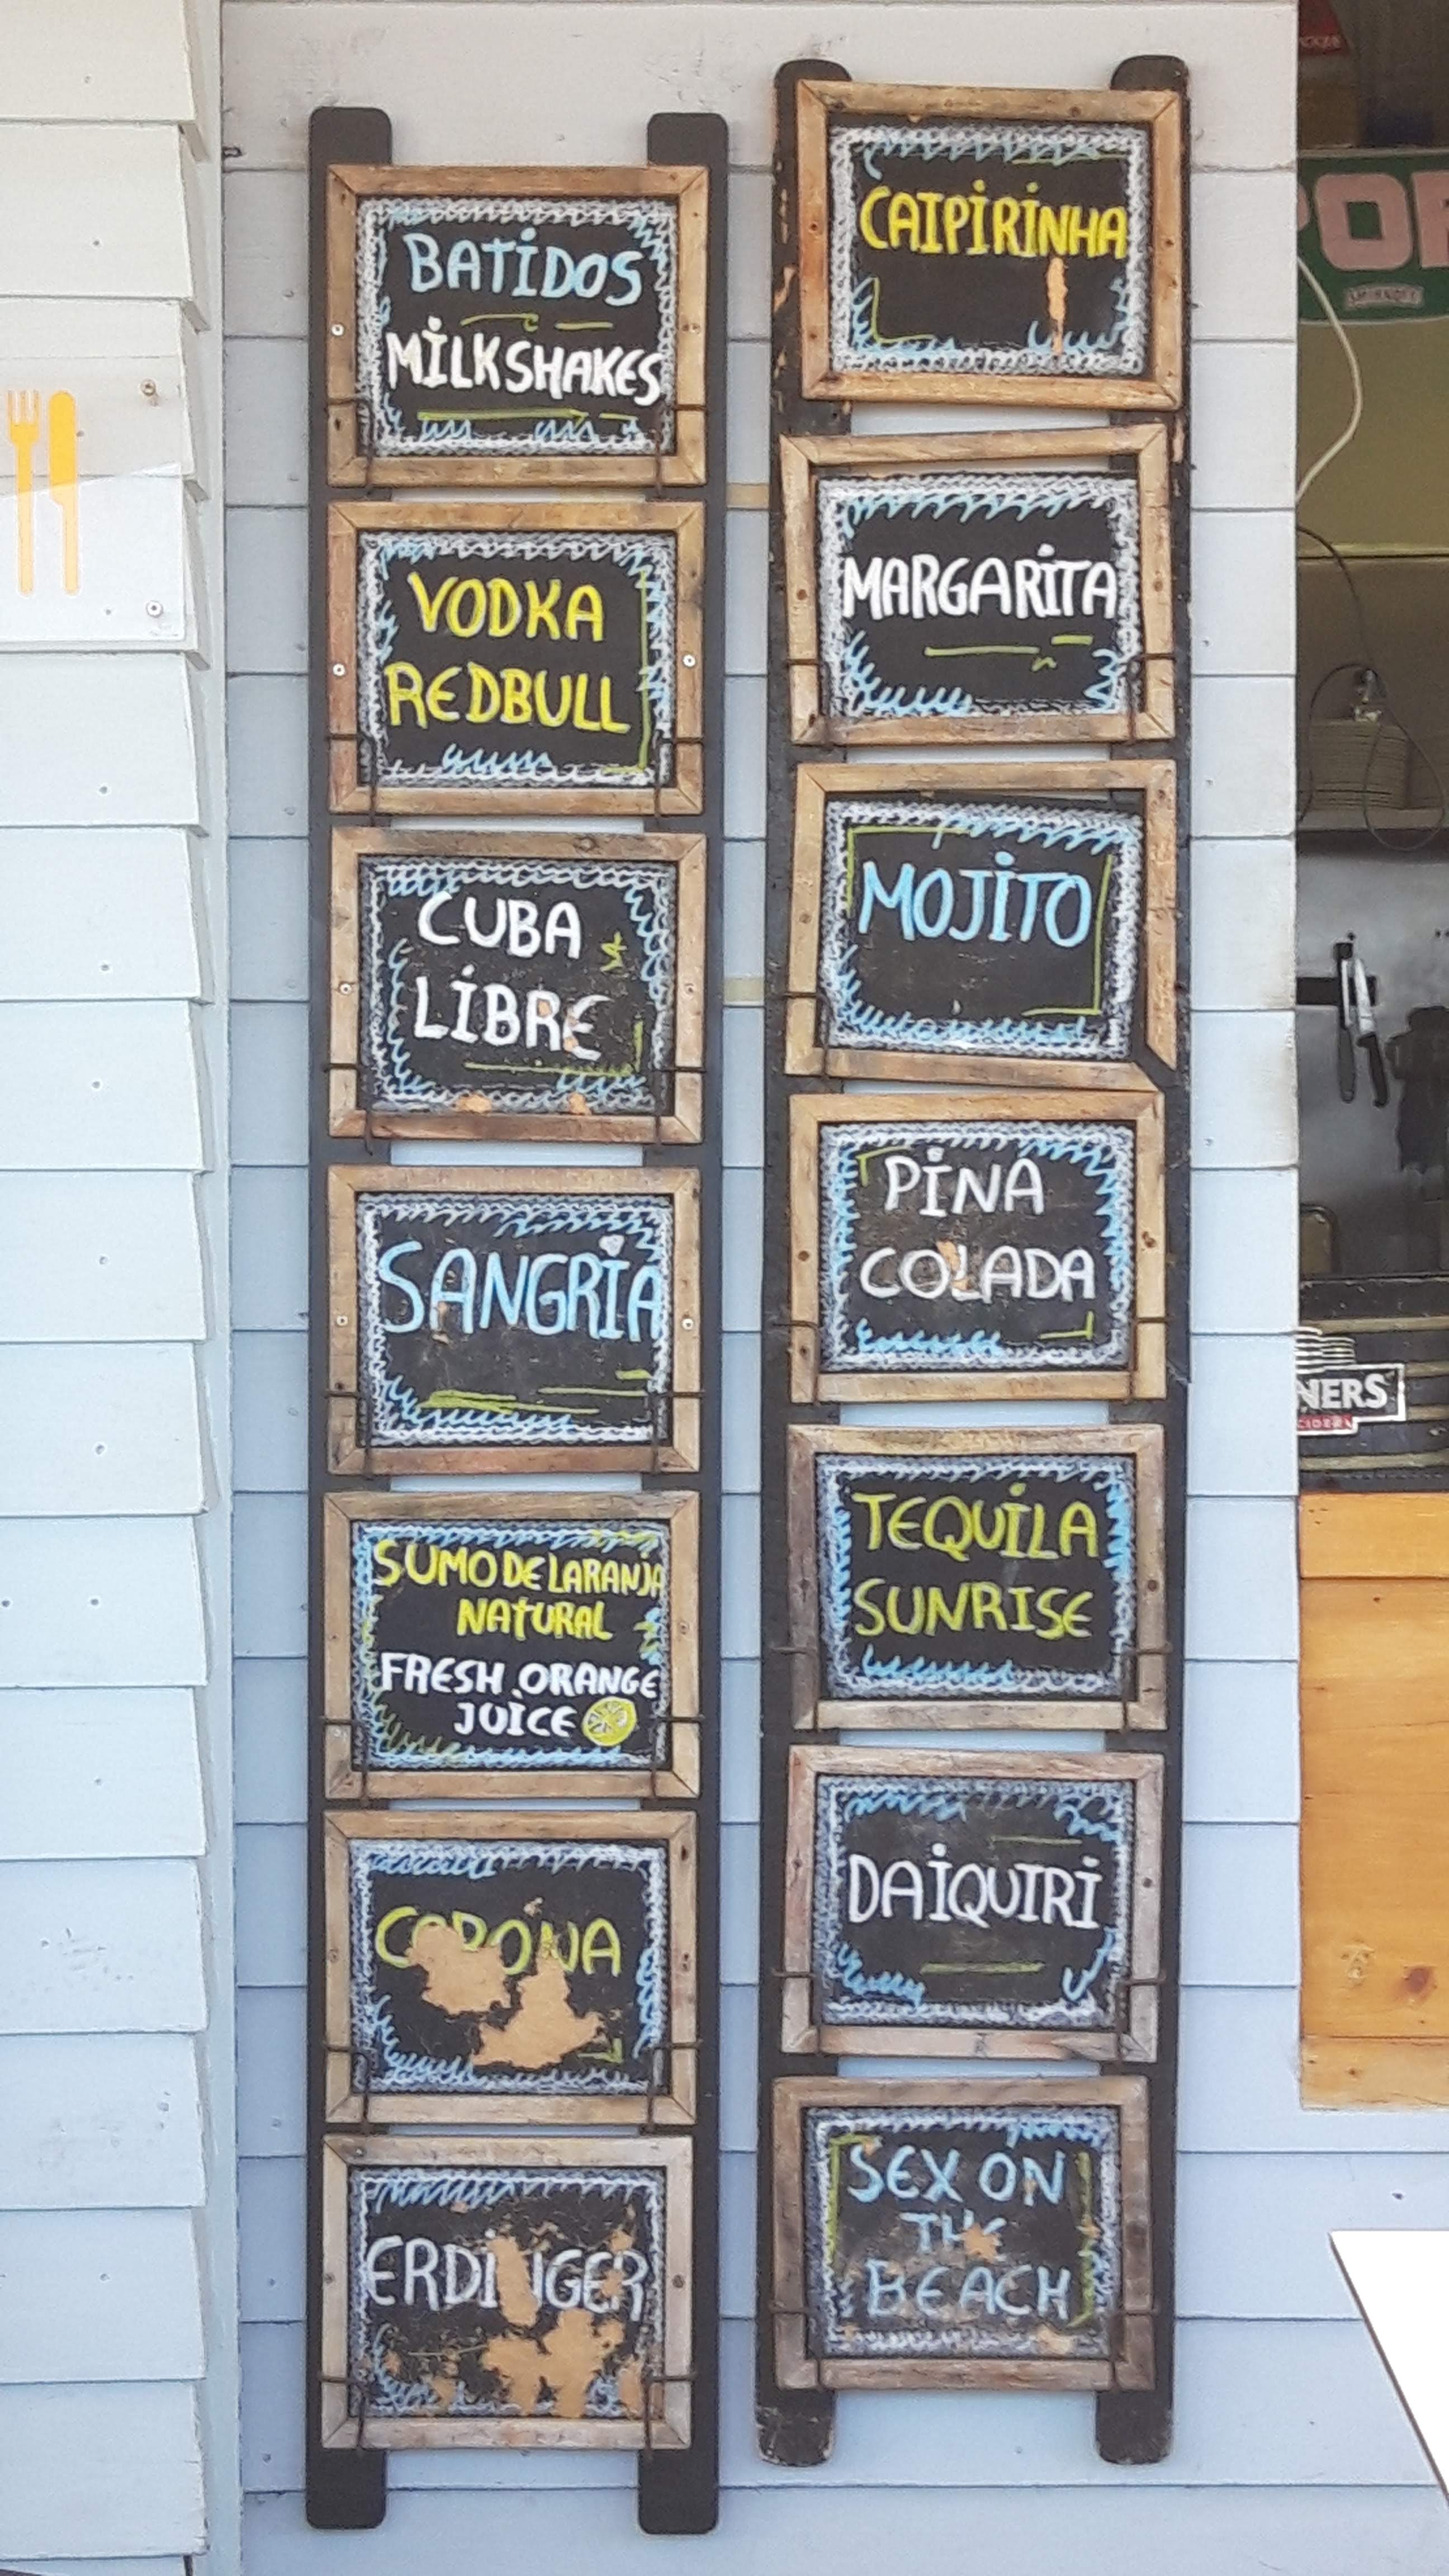 BATIDOS
MILKSHAKES
VODKA
REDBULL
CUBA
LIBRE
SANGRIA
SUMO DE LARANJA
NATURAL
FRESH ORANGE
JUICE
CORONA
ERDINGER
CAIPIRINHA
MARGARITA
MOJITO
PINA
COLADA
TEQUILA
SUNRISE
DAIQUIRI
SEX ON
THE
BEACH
SMIRNOFF
NERS
CIDER